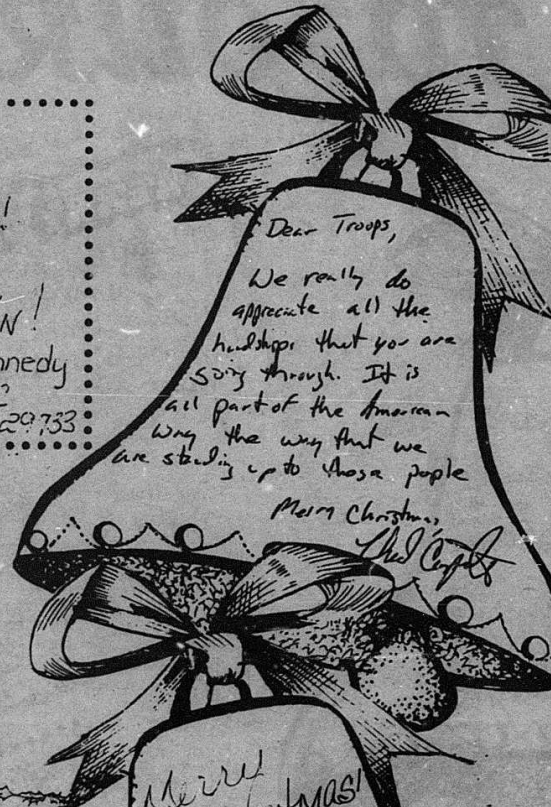 !
N!
nnedy
29733
Dear Troops,
We really do
appreciate all the
hardships that you are
going through. It is
all part of the American
way the way that we
are standing up to those people
Merry Christmas,
Merry
tmas!